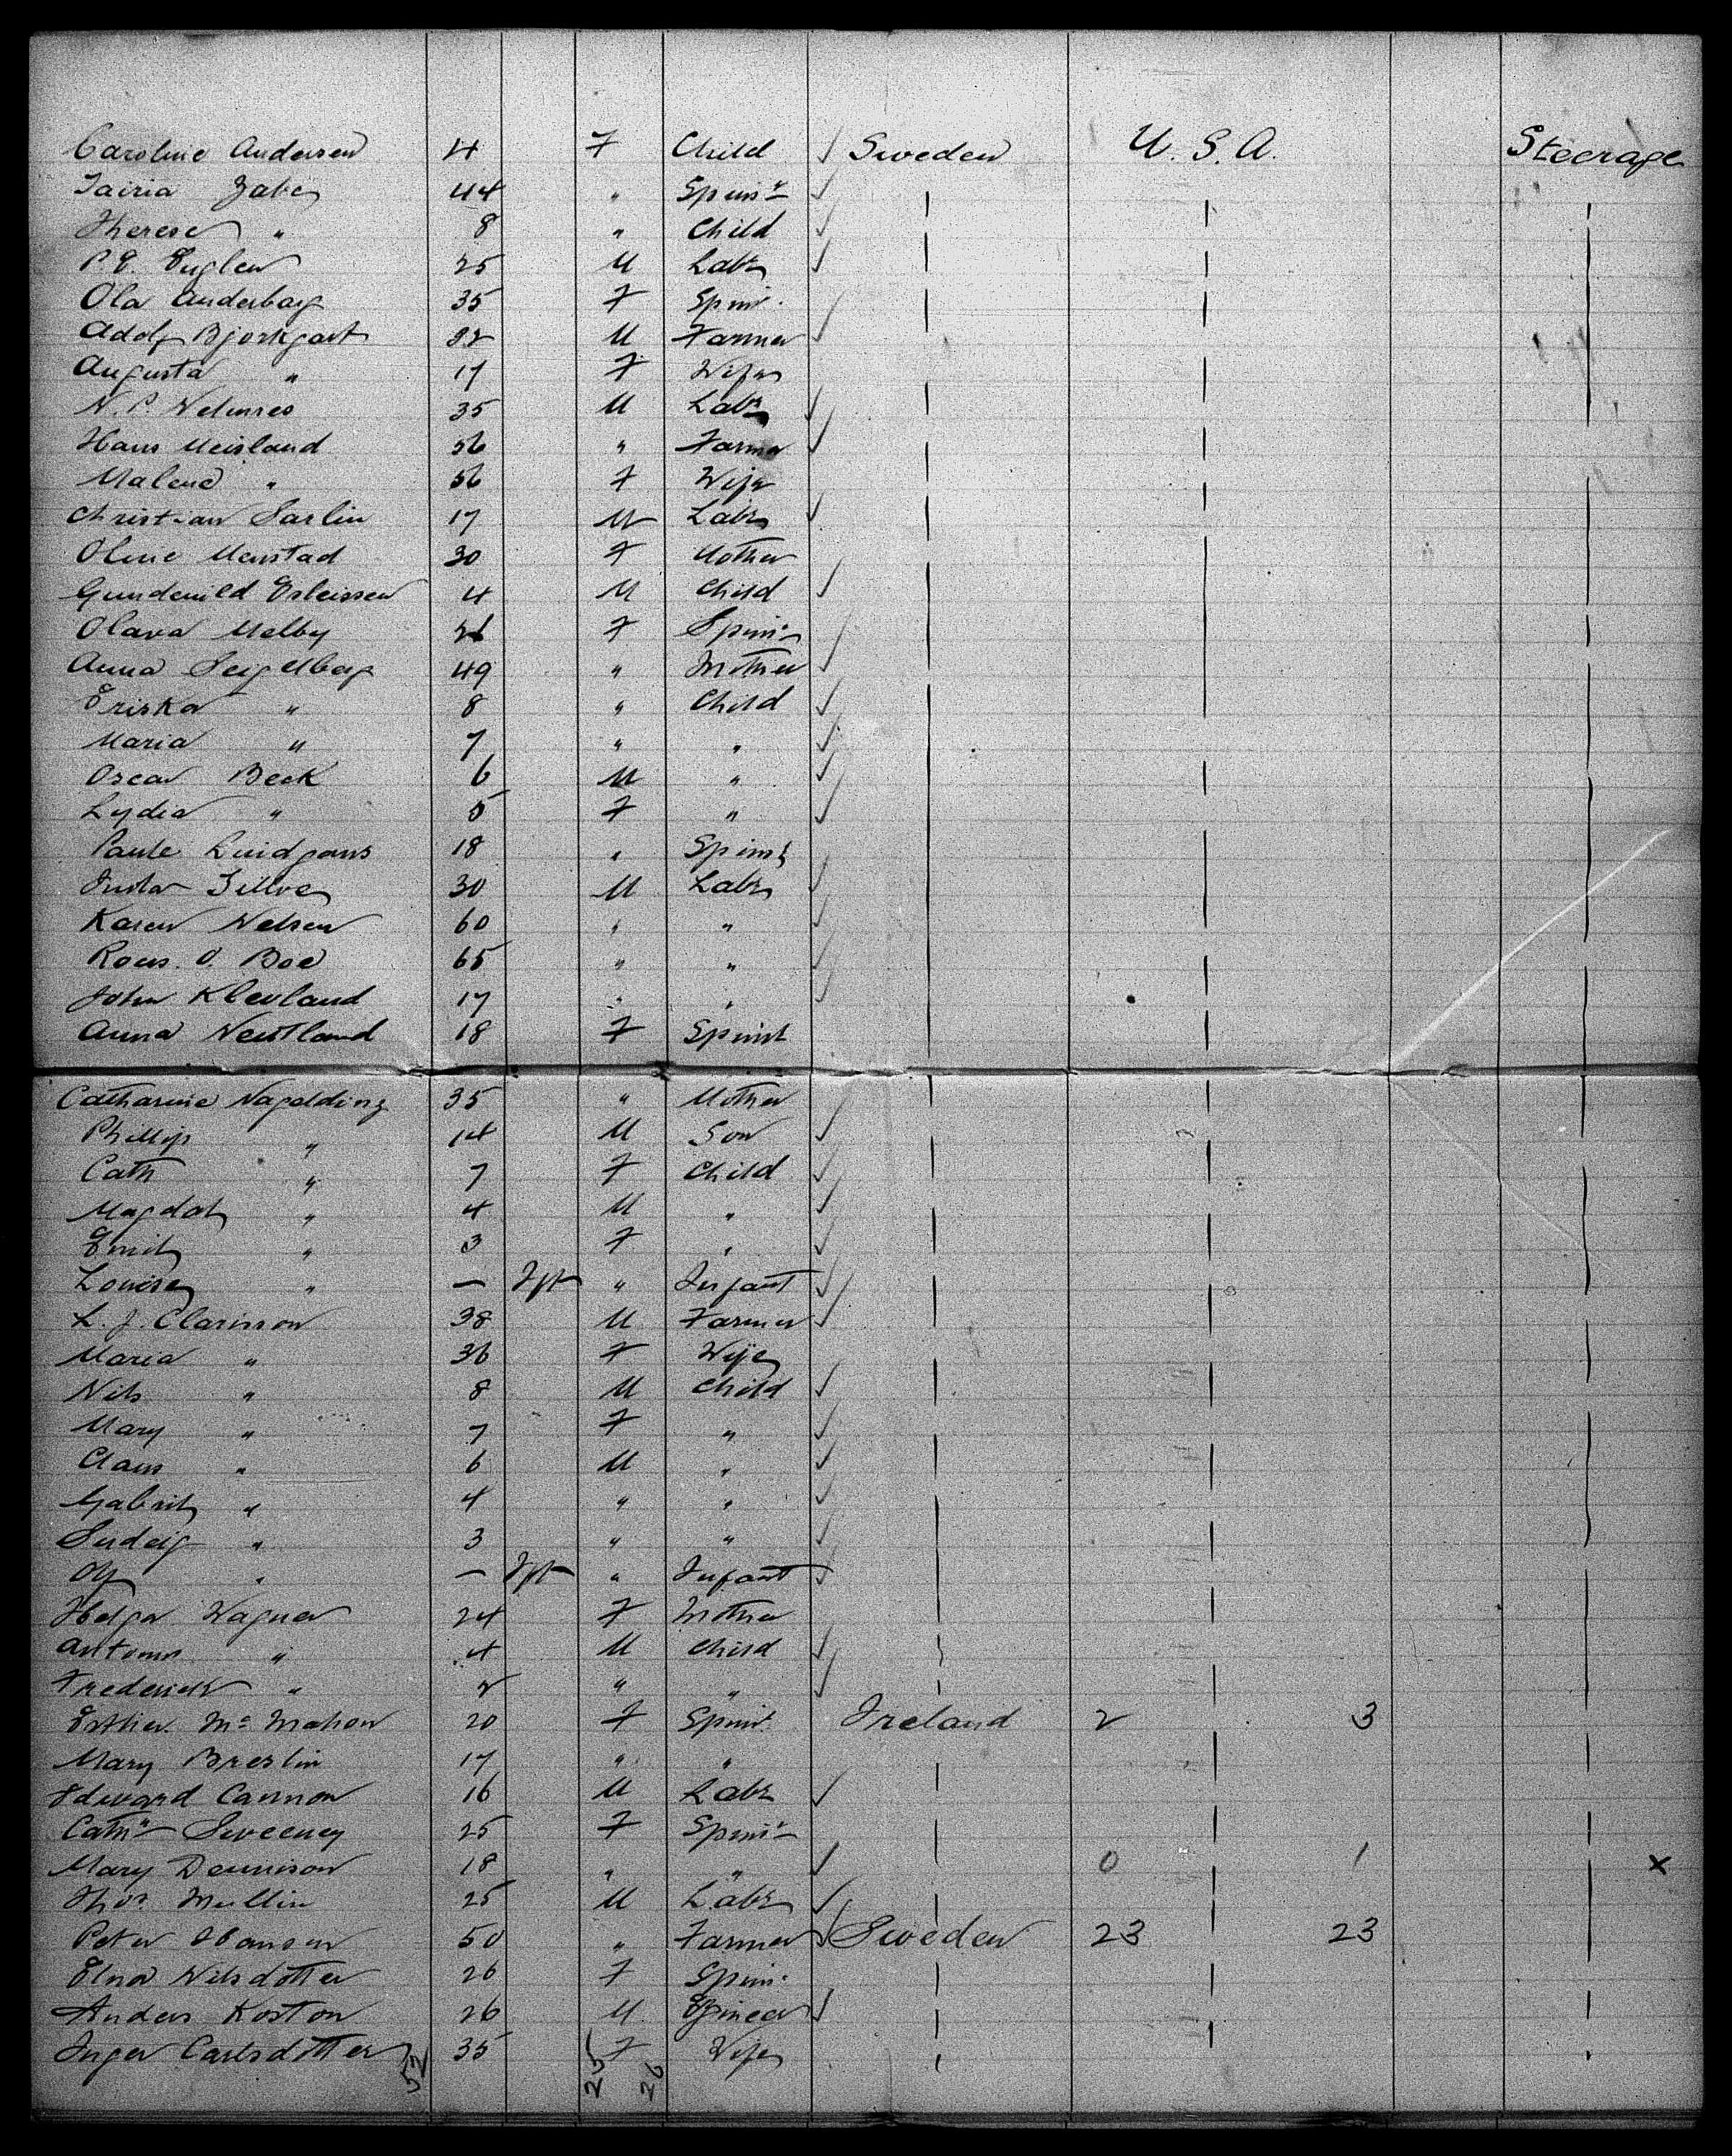 Caroline Andersen 4 F Child ✓ Sweden U. S. A. Steerage
Zabe 44 " Spinsr ✓
Therese " 8 " Child ✓
P. E. Englen 25 M Labr ✓
Ola Anderberg 35 F Spinr.
Adolf Bjorkgart 32 M Farmer ✓
Augusta " 17 F Wife
N. P. 35 M Labr ✓
Hans Meisland 56 " Farmer ✓
Malene " 56 F Wife
Christian Sarlin 17 M Labr ✓
Oline Menstad 30 F Mother
4 M Child ✓
Olava Melby 26 F Spinr
Anna Seigelberg 49 " Mother ✓
Eriska " 8 " Child ✓
Maria " 7 " " ✓
Oscar Beck 6 M " ✓
Lydia " 5 F " ✓
Paule 18 " Spinst
30 M Labr ✓
Karen Nelsen 60 " " ✓
O. Boe 65 " " ✓
John Klevland 17 " " ✓
Anna Neutland 18 F Spinst
Catharine Nagelding 35 " Mother
Phillip " 14 M Son ✓
Cath " 7 F Child ✓
Magdal " 4 M " ✓
Emil " 3 F " ✓
Louise " — Ift " Infant ✓
L. J. Clarisson 38 M Farmer ✓
Maria " 36 F Wife
Nils " 8 M Child ✓
Mary " 7 F " ✓
Claus " 6 M " ✓
Gabril " 4 " " ✓
Sudeig " 3 " " ✓
" — Ift " Infant ✓
Helga Wagner 24 F Mother
Antonn " 4 M Child ✓
Frederick " 2 " " ✓
Esther Mc Mahon 20 F Spinr. Ireland 2 3
Mary Breslin 17 " "
Edward Cannon 16 M Labr ✓
Cathn Sweeney 25 F Spinsr
Mary Dennison 18 " " ✓ 0 1 x
Thos. Mullin 25 M Labr ✓
Peter Hansen 50 " Farmer ✓ Sweden 23 23
Elna Nilsdotter 26 F Spinr.
Anders Koston 26 M ✓
Inger Carlsdotter 35 F Wife
52 25 26